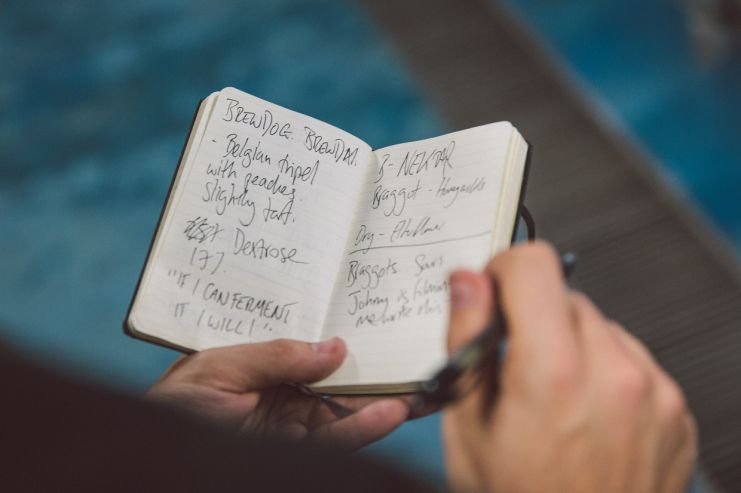 BREWDOG. BREWDAY.
- Belgian tripel
with peaches.
Slightly tart.
Dextrose
17%.
"IF I CAN FERMENT
IT I WILL!".
B - NEKTAR
Braggot -
Dry -
Braggots Sours.
Johnny is filming
me write this